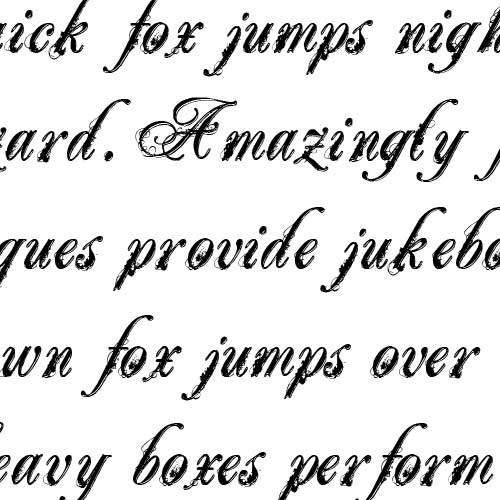 uick fox jumps nigh
zard. Amazingly f
ques provide jukebo
own fox jumps over
heavy boxes perform